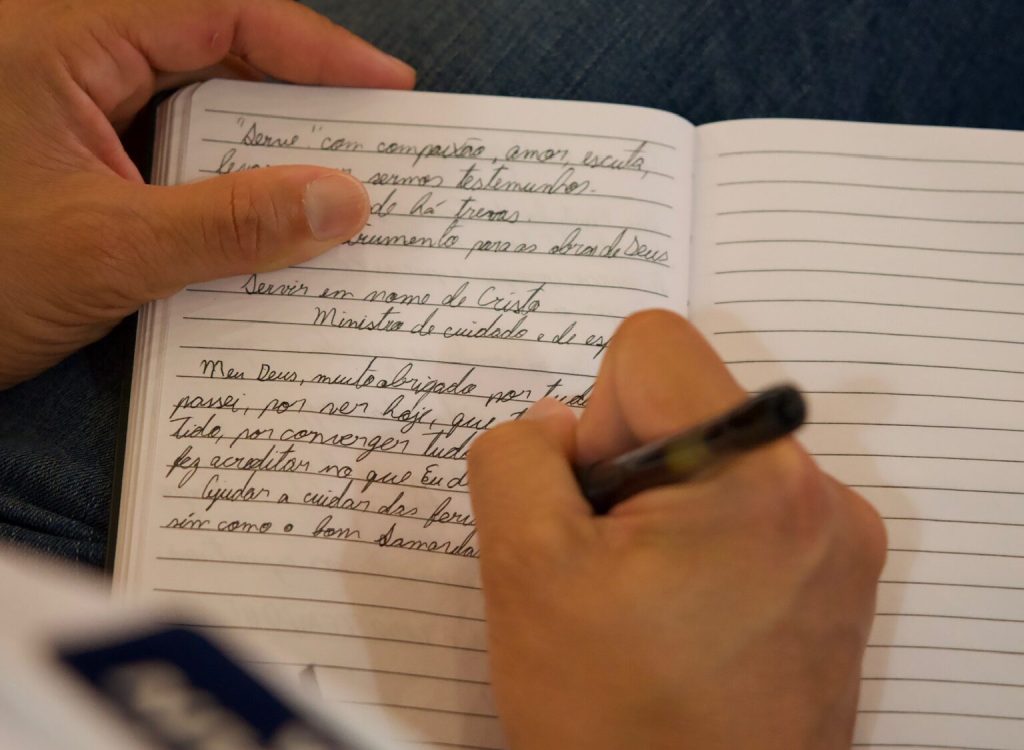 "Serve" com compaixão, amor, escuta,
sermos testemunhos.
de há trevas.
trumento para as obras de Deus
Servir em nome de Cristo
Ministro de cuidado e de esp
Meu Deus, muito obrigado por tudo
passei, por ver hoje, que
tido, por converger tudo
fez acreditar no que Eu d
Ajudar a cuidar das feri
sim como o bom Samarita